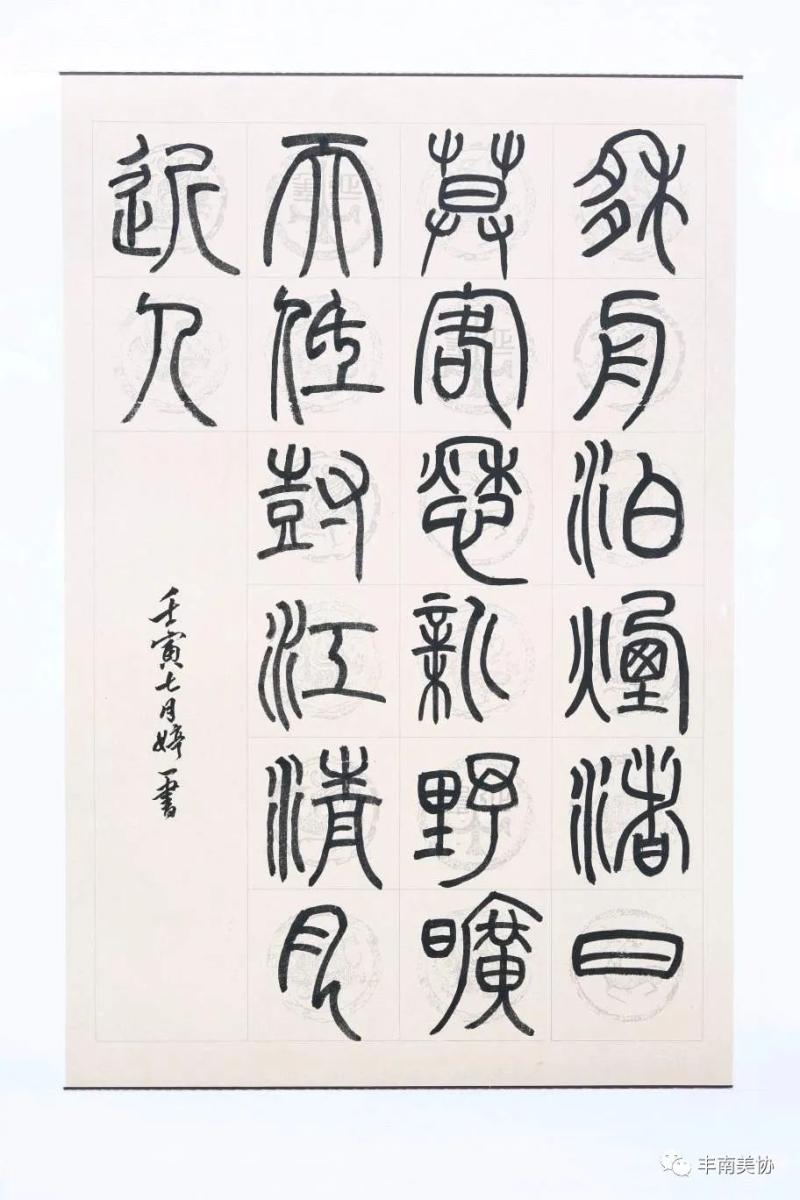 移舟泊煙渚日
莫客愁新野曠
天低尌江清月
近人
壬寅七月婷書
丰南美协